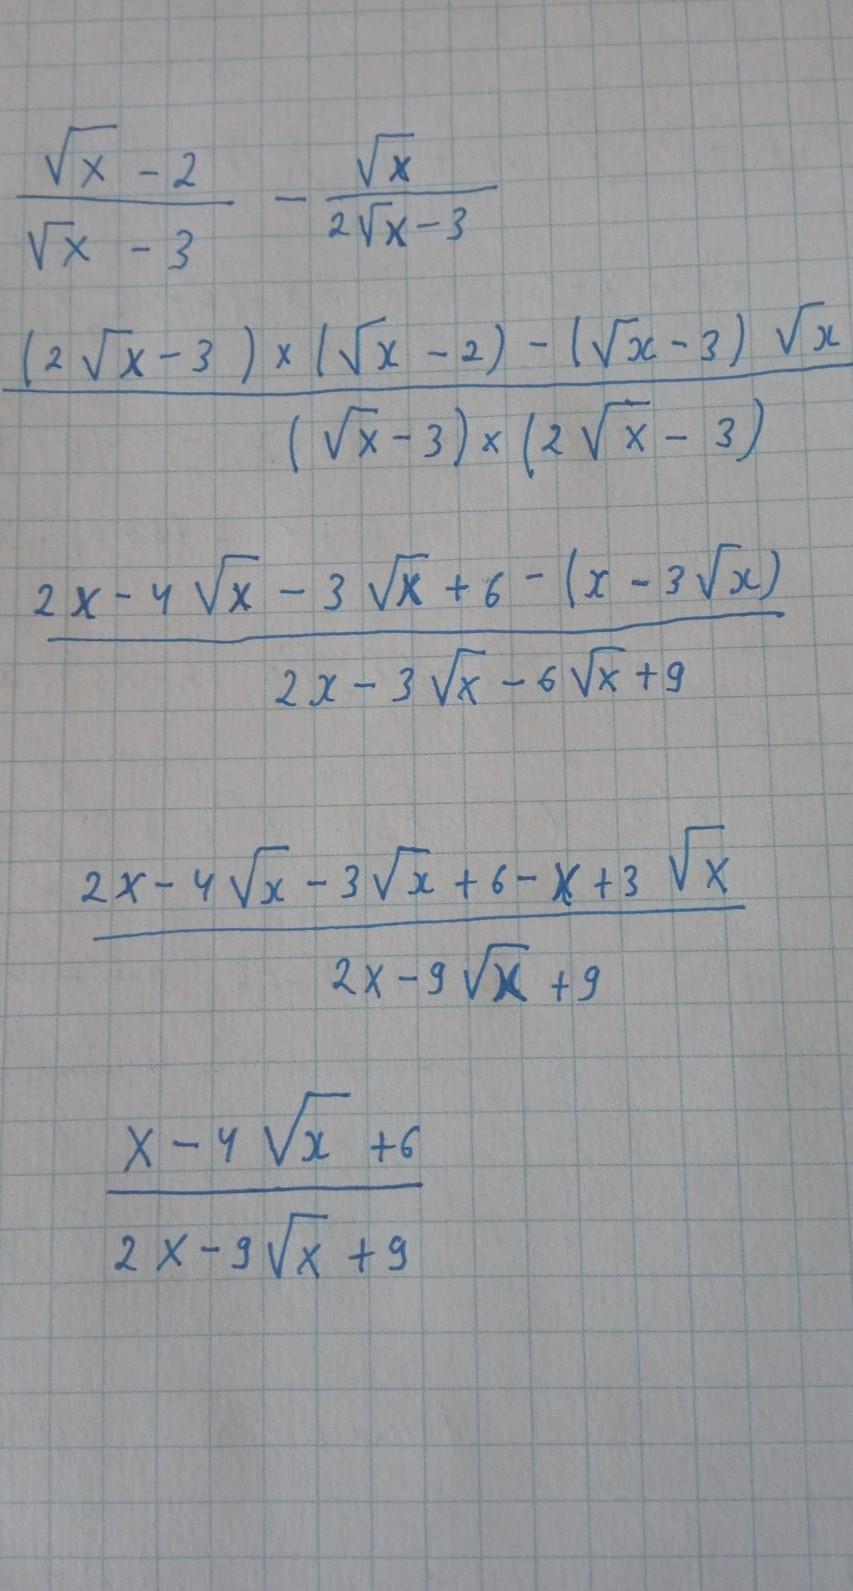 √x - 2
√x - 3
- √x
2√x - 3
(2√x - 3) × (√x - 2) - (√x - 3) √x
(√x - 3) × (2√x - 3)
2x - 4√x - 3√x + 6 - (x - 3√x)
2x - 3√x - 6√x + 9
2x - 4√x - 3√x + 6 - x + 3√x
2x - 9√x + 9
x - 4√x + 6
2x - 9√x + 9